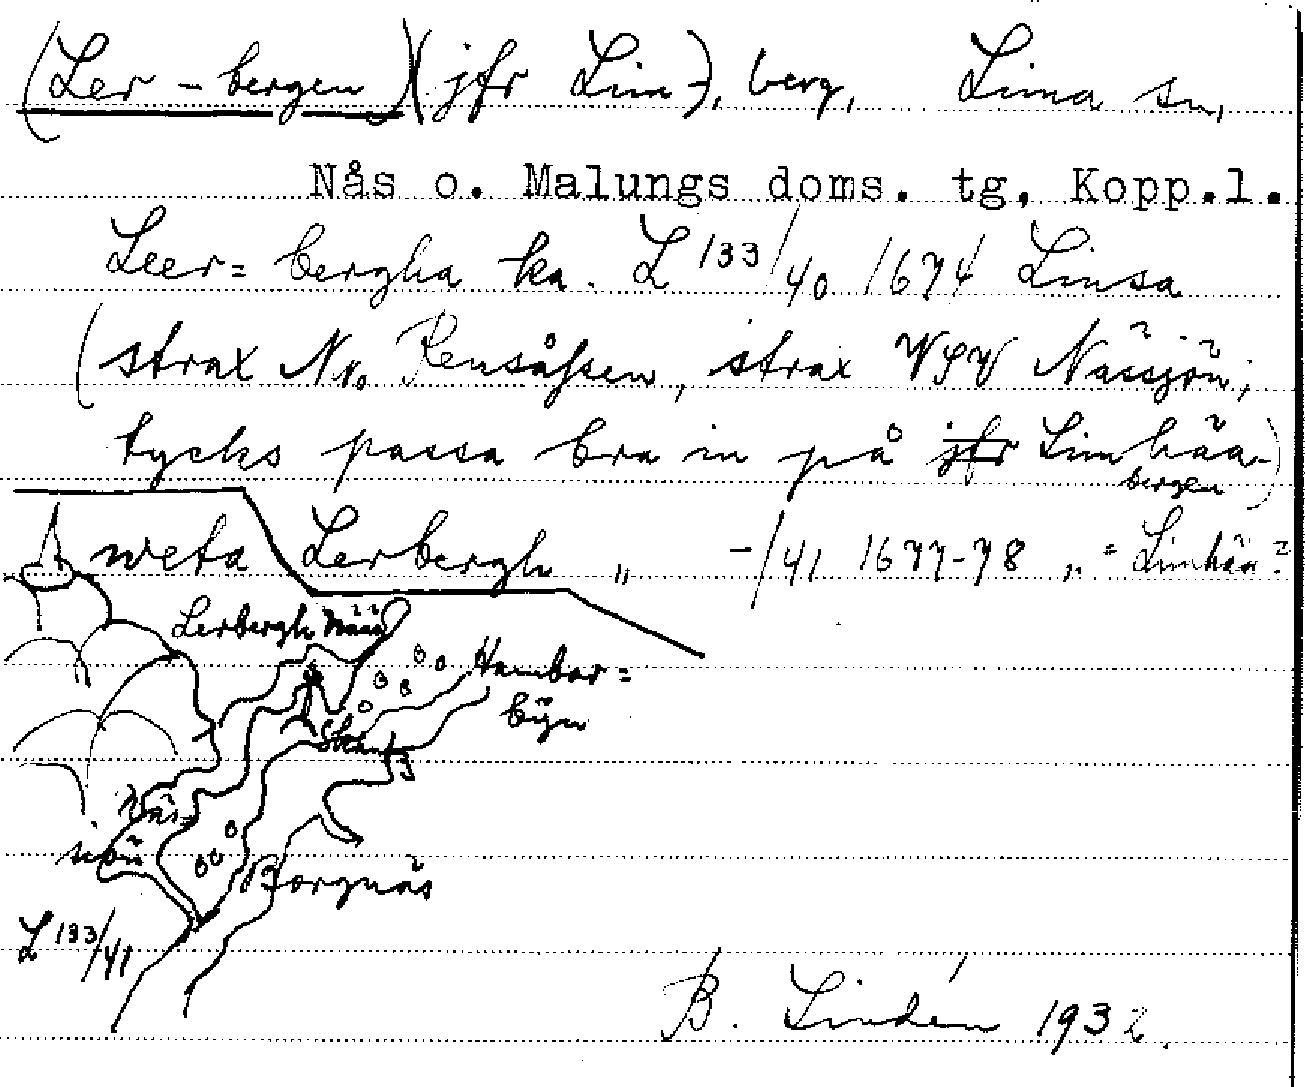 (Ler-bergen) (jfr Lim-), berg, Lima sn,
Nås o. Malungs doms. tg, Kopp.l.
Leer= bergha ka. L 133/40 1674 Limsa
(strax Nv. Rensåssen, strax VSV Nässjön,
tycks passa bra in på jfr Limhåa-)
bergen
weta Lerbergh „ -/41 1677-78 „ = Limhån?
Lerbergh Näss
Hambor=
byn
Näs=
siön
Borgnäs
L 133/41
B. Lindén 1932.